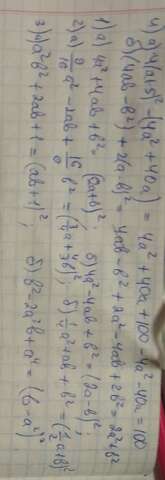 4) а) 4(a+5)² - (4a² + 40a) = 4a² + 40a + 100 - 4a² - 40a = 100
б) (4ab - b²) + 2(a-b)² = 4ab - b² + 2a² - 4ab + 2b² = 2a² + b²
1) а) 4a² + 4ab + b² = (2a+b)²; б) 4a² - 4ab + b² = (2a-b)²;
2) а) 9/16 a² - 2ab + b² = ; б) 1/4 a² + ab + b² = (1/2 a + b)²
3) а) a²b² + 2ab + 1 = (ab+1)²; б) b² - 2a²b + a⁴ = (b-a²)².